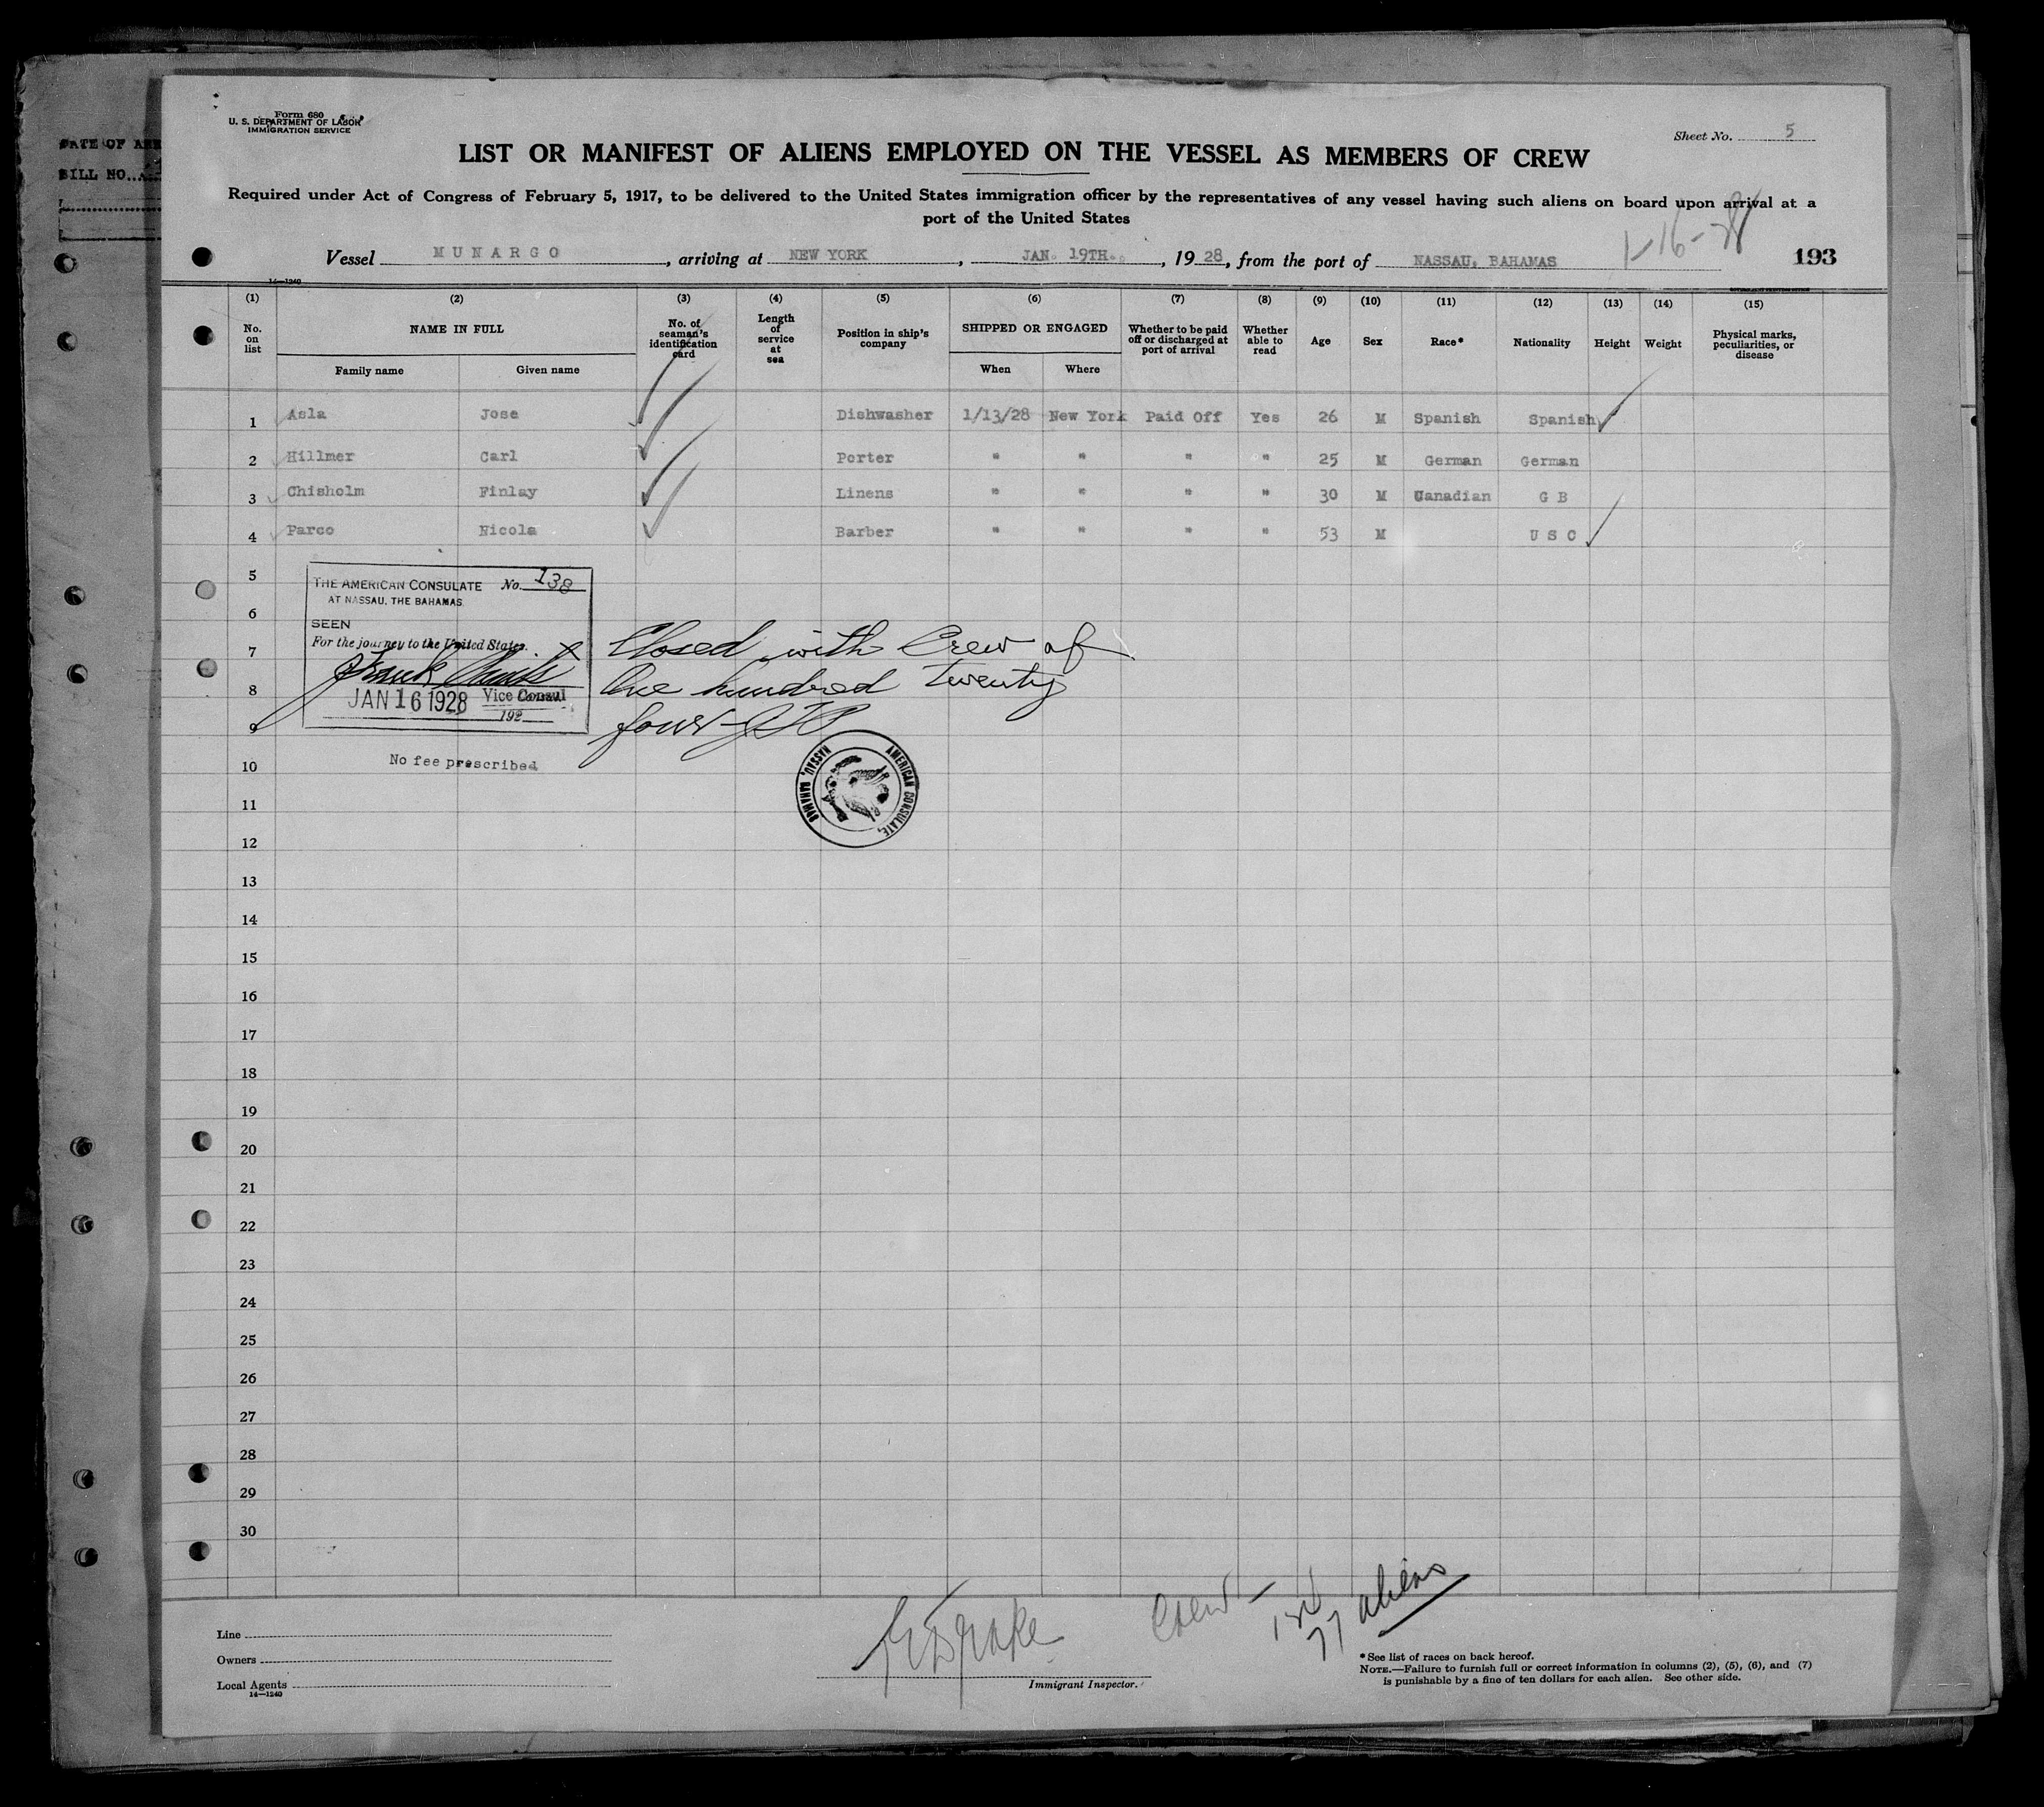 DATE OF ARR
BILL NO.
Form 680
U. S. DEPARTMENT OF LABOR
IMMIGRATION SERVICE
Sheet No. 5
LIST OR MANIFEST OF ALIENS EMPLOYED ON THE VESSEL AS MEMBERS OF CREW
Required under Act of Congress of February 5, 1917, to be delivered to the United States immigration officer by the representatives of any vessel having such aliens on board upon arrival at a
port of the United States
1-16-28
Vessel MUNARGO, arriving at NEW YORK, JAN. 19TH., 1928, from the port of NASSAU, BAHAMAS 193
14—1240
(1) (2) (3) (4) (5) (6) (7) (8) (9) (10) (11) (12) (13) (14) (15)
No. on list NAME IN FULL No. of seaman's identification card Length of service at sea Position in ship's company SHIPPED OR ENGAGED Whether to be paid off or discharged at port of arrival Whether able to read Age Sex Race* Nationality Height Weight Physical marks, peculiarities, or disease
Family name Given name When Where
1 Asla Jose Dishwasher 1/13/28 New York Paid Off Yes 26 M Spanish Spanish
2 Hillmer Carl Porter " " " " 25 M German German
3 Chisholm Finlay Linens " " " " 30 M Canadian G B
4 Parco Nicola Barber " " " " 53 M U S C
5
6
7
8
9
10
11
12
13
14
15
16
17
18
19
20
21
22
23
24
25
26
27
28
29
30
THE AMERICAN CONSULATE No. 138
AT NASSAU, THE BAHAMAS
SEEN
For the journey to the United States.
JAN 16 1928 Vice Consul
192
No fee prescribed
Closed with Crew of
One hundred twenty
four
AMERICAN CONSULATE,
NASSAU, BAHAMAS
Crew —
77 aliens
Drake
Line
Owners
Local Agents
14—1240
Immigrant Inspector.
* See list of races on back hereof.
NOTE.—Failure to furnish full or correct information in columns (2), (5), (6), and (7)
is punishable by a fine of ten dollars for each alien. See other side.